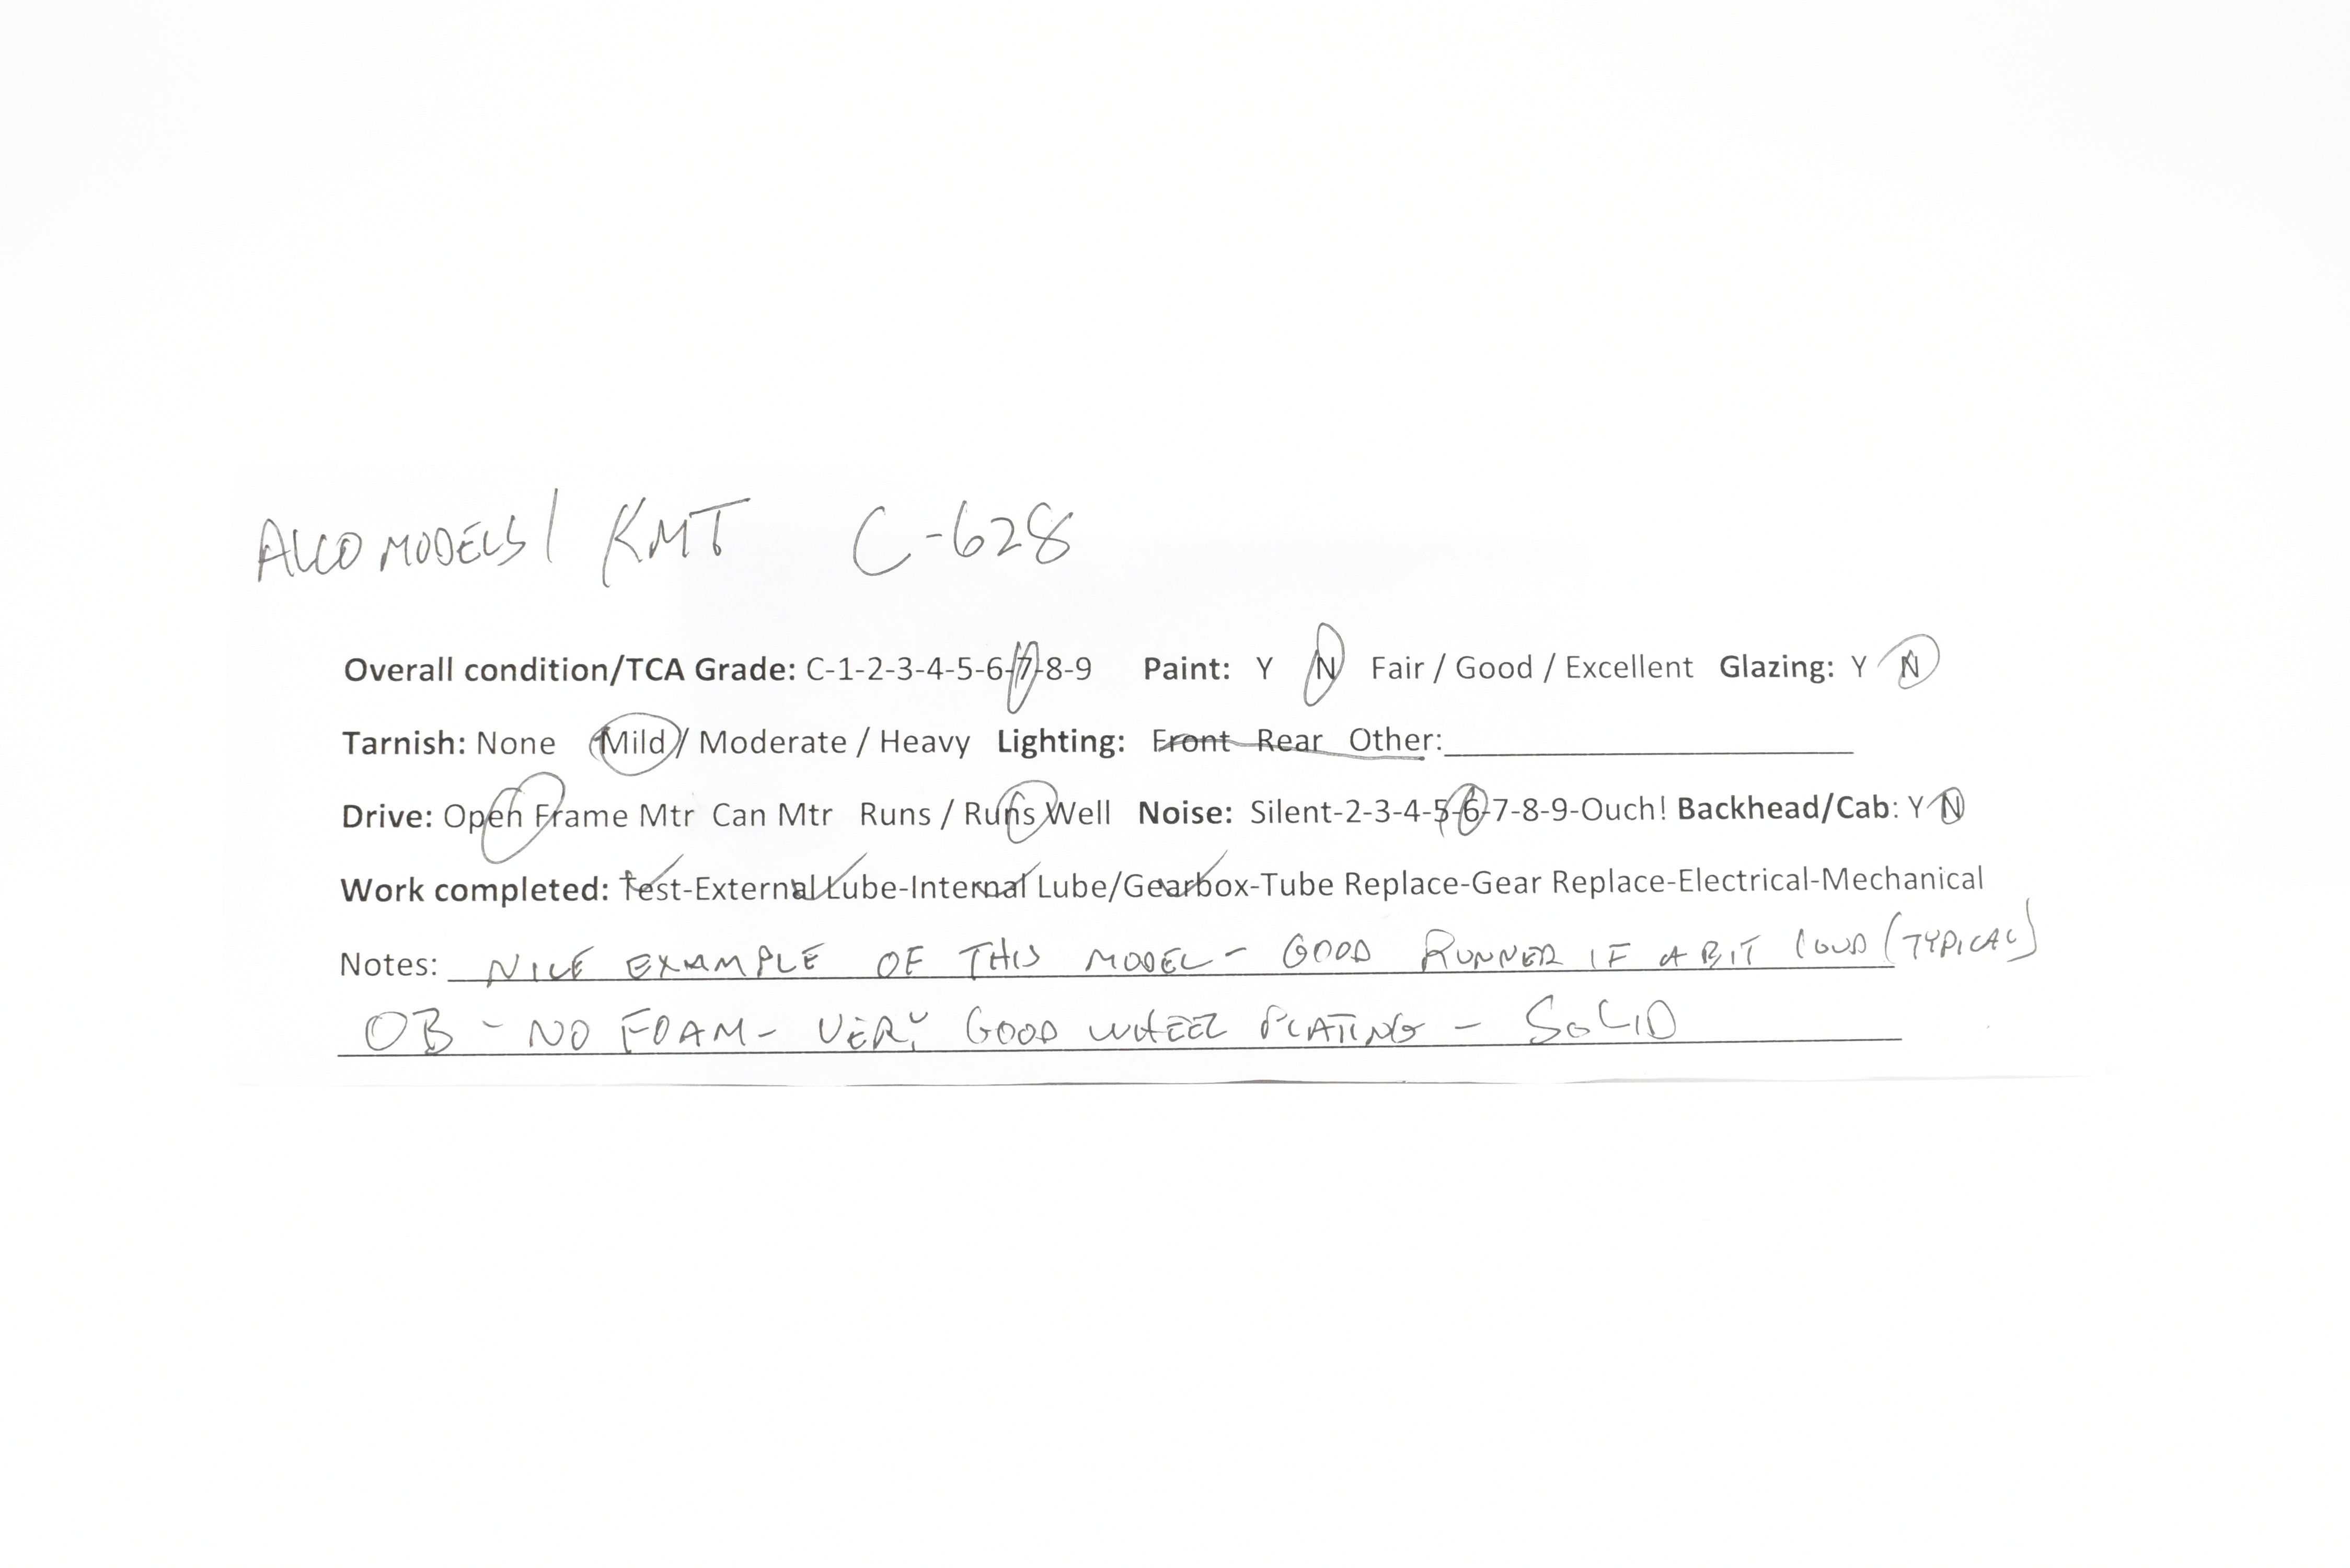 ALCO MODELS / KMT C-628
Overall condition/TCA Grade: C-1-2-3-4-5-6-7-8-9 Paint: Y N Fair / Good / Excellent Glazing: Y N
Tarnish: None Mild / Moderate / Heavy Lighting: Front Rear Other:
Drive: Open Frame Mtr Can Mtr Runs / Runs Well Noise: Silent-2-3-4-5-6-7-8-9-Ouch! Backhead/Cab: Y N
Work completed: Test-External Lube-Internal Lube/Gearbox-Tube Replace-Gear Replace-Electrical-Mechanical
Notes: NICE EXAMPLE OF THIS MODEL - GOOD RUNNER IF A BIT LOUD (TYPICAL)
OB - NO FOAM - VERY GOOD WHEEL PLATING - SOLID